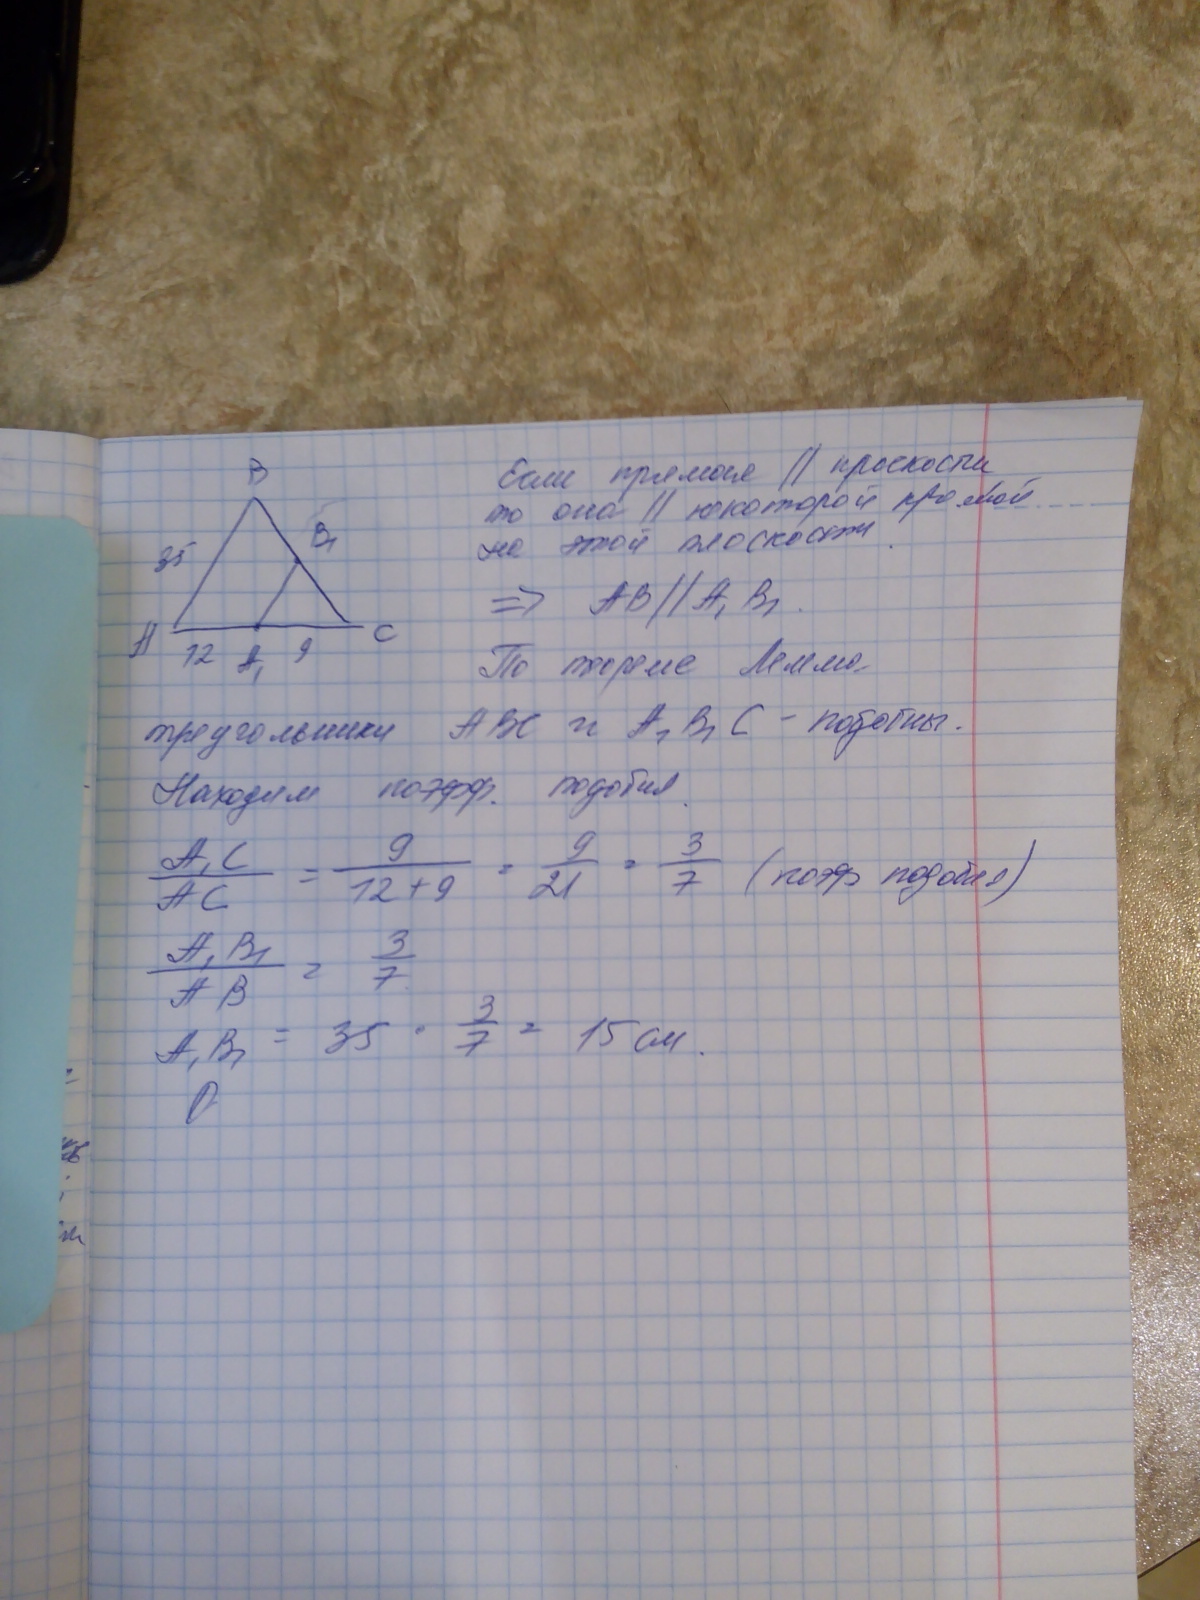 B
B₁
35
A
12
A₁
9
C
Если прямая || плоскости
то она || некоторой прямой
на этой плоскости.
=> AB || A₁B₁.
По теореме Лемма
треугольники ABC и A₁B₁C - подобны.
Находим коэфф. подобия.
A₁C / AC = 9 / 12+9 = 9 / 21 = 3 / 7 (коэф подобия)
A₁B₁ / AB = 3 / 7
A₁B₁ = 35 · 3 / 7 = 15 см.